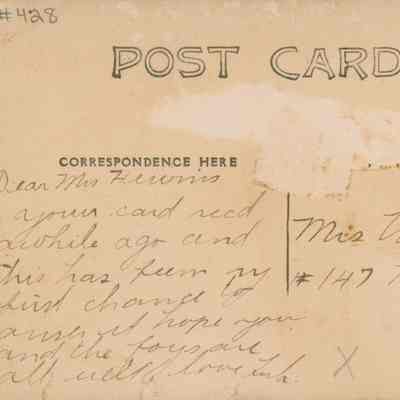 #428
POST CARD
CORRESPONDENCE HERE
Dear Mrs
your card recd
awhile ago and
this has been my
first chance to
answer it hope you
and the boys are
all well. love
Mis
#147
X